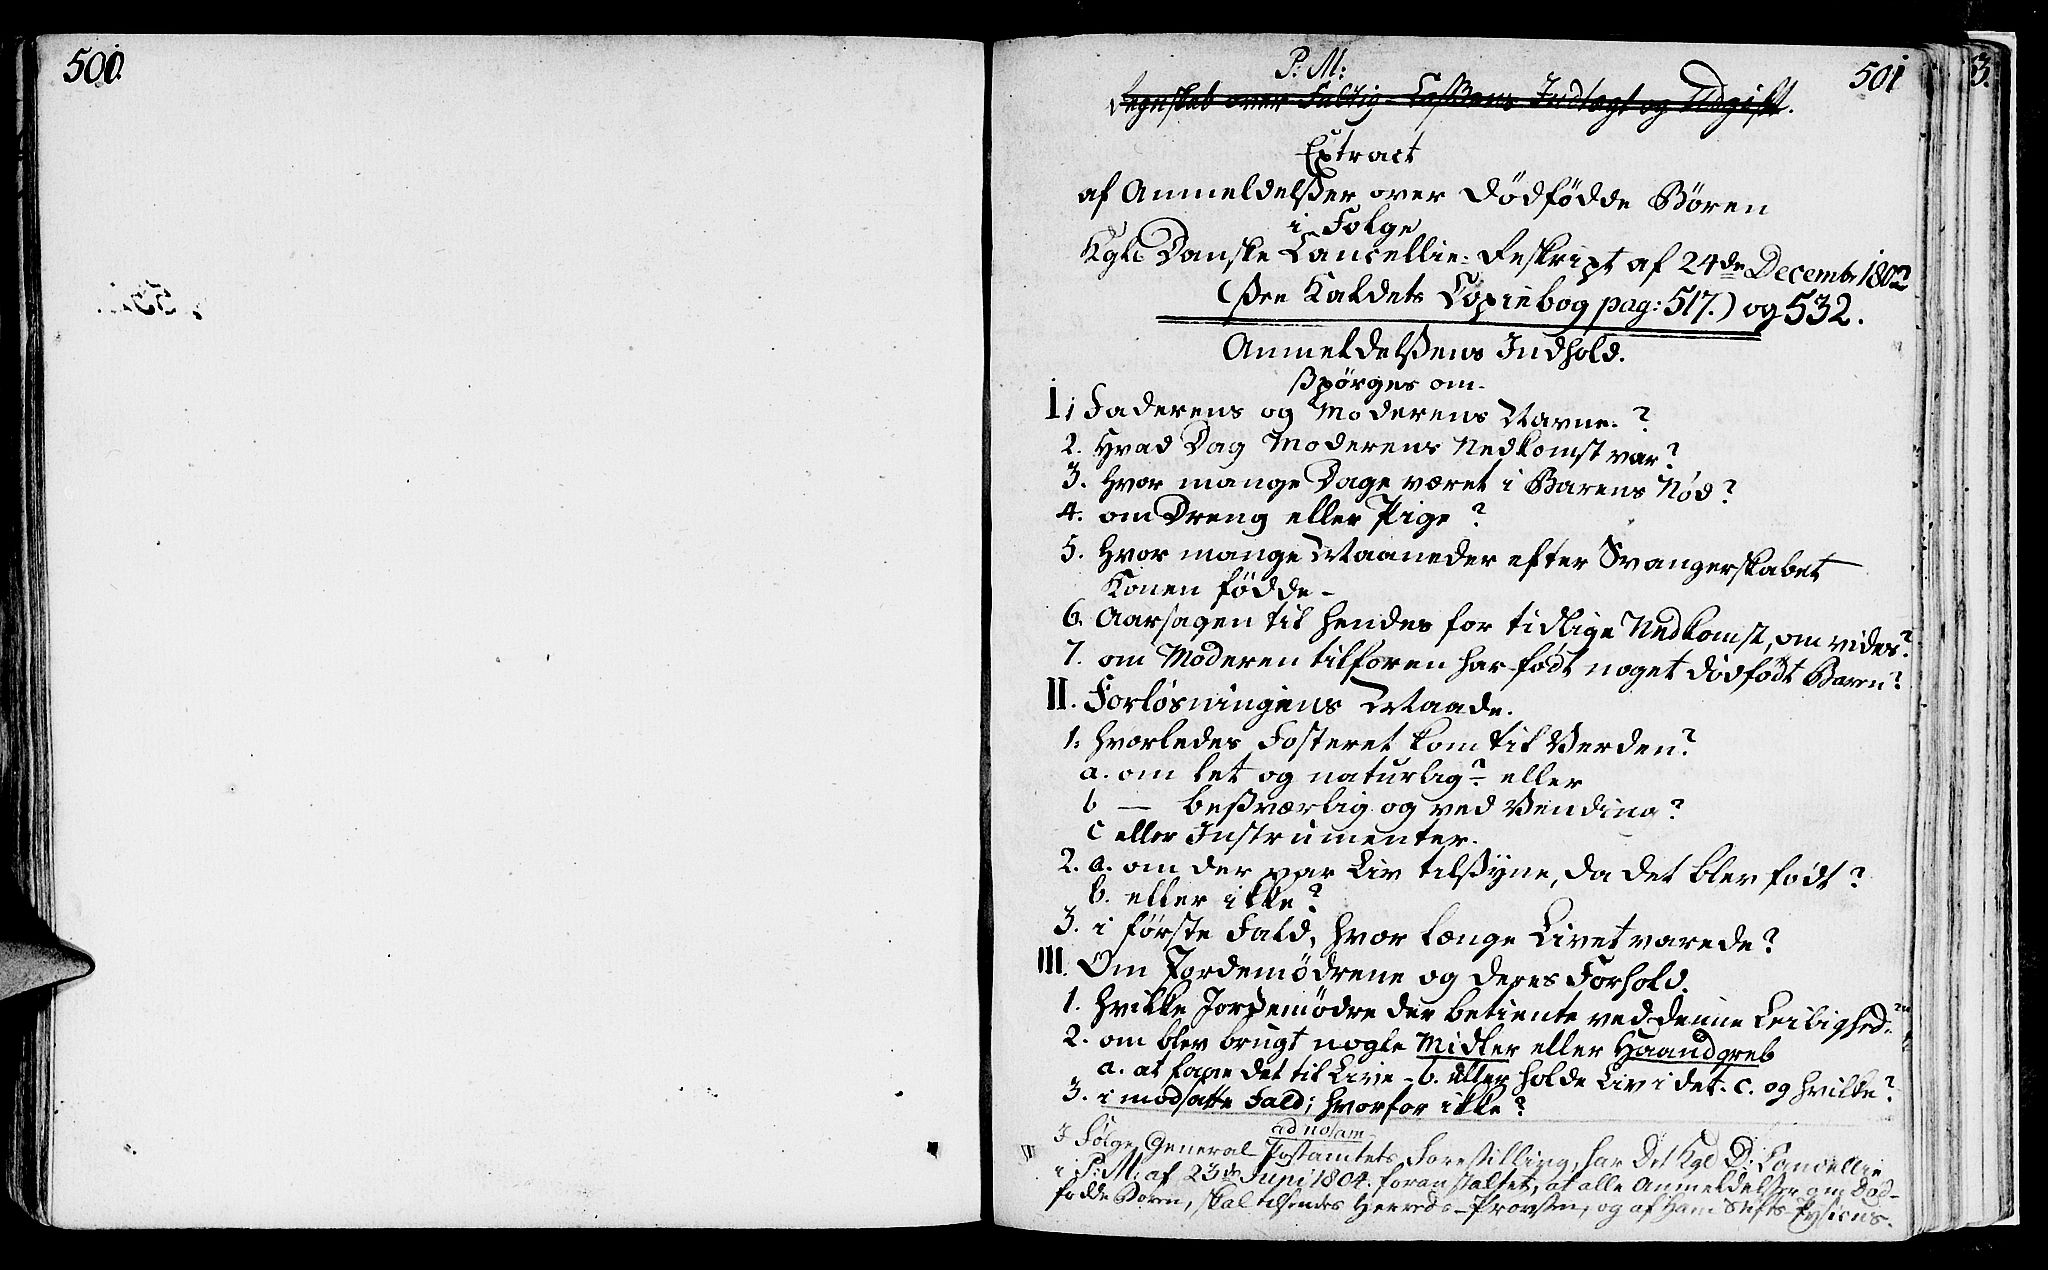 500.
501
P: M:
Regnskab over Fattig-Cassens Indtægt og Udgift.
Extract
af Anmeldelsser over Dödfödde Bören
i Folge
Kgle Danske Cancellie-Reskript af 24de Decembr 1802
(See Kaldets Copiebog pag: 517.) og 532.
Anmeldelssens Indhold.
Spörges om.
I. 1 Faderens og Moderens Navne?
2. Hvad Dag Moderens Nedkomst var?
3. Hvor mange Dage været i Barens Nöd?
4. om Dreng eller Pige?
5. Hvor mange Maaneder efter Svangerskabet
Konen födde-
6. Aarsagen til hendes for tidlige Nedkomst, om vides?
7. om Moderen tilforen har födt noget dödfödt Baren?
II. Forlösningens Maade.
1. Hvorledes Fosteret kom til Verden?
a. om let og naturlig? eller
b — besværlig og ved Vending?
c eller Instrumenter.
2. a. om der var Liv tilsyne, da det blev födt?
b. eller ikke?
3. i förste Fald, hvor længe Livet varede?
III. Om Jordemödrene og deres Forhold.
1. Hvilke Jordemödre der betiente ved denne Leilighed?
2. om blev brugt nogle Midler eller Haandgreb
a. at faae det til Live - b. eller holde Liv i det. c. og hvilke?
3. i modsatte Fald; hvorfor ikke?
ad notam
I Fölge General Postamtets Forestilling, har Det Kgl D: Cancellie
i P: M: af 23de Juni 1804. foranstaltet, at alle Anmeldelser om Död-
födde Bören, skal tilsendes Herreds-Provsten, og af ham Stifts Fysicus.
3.